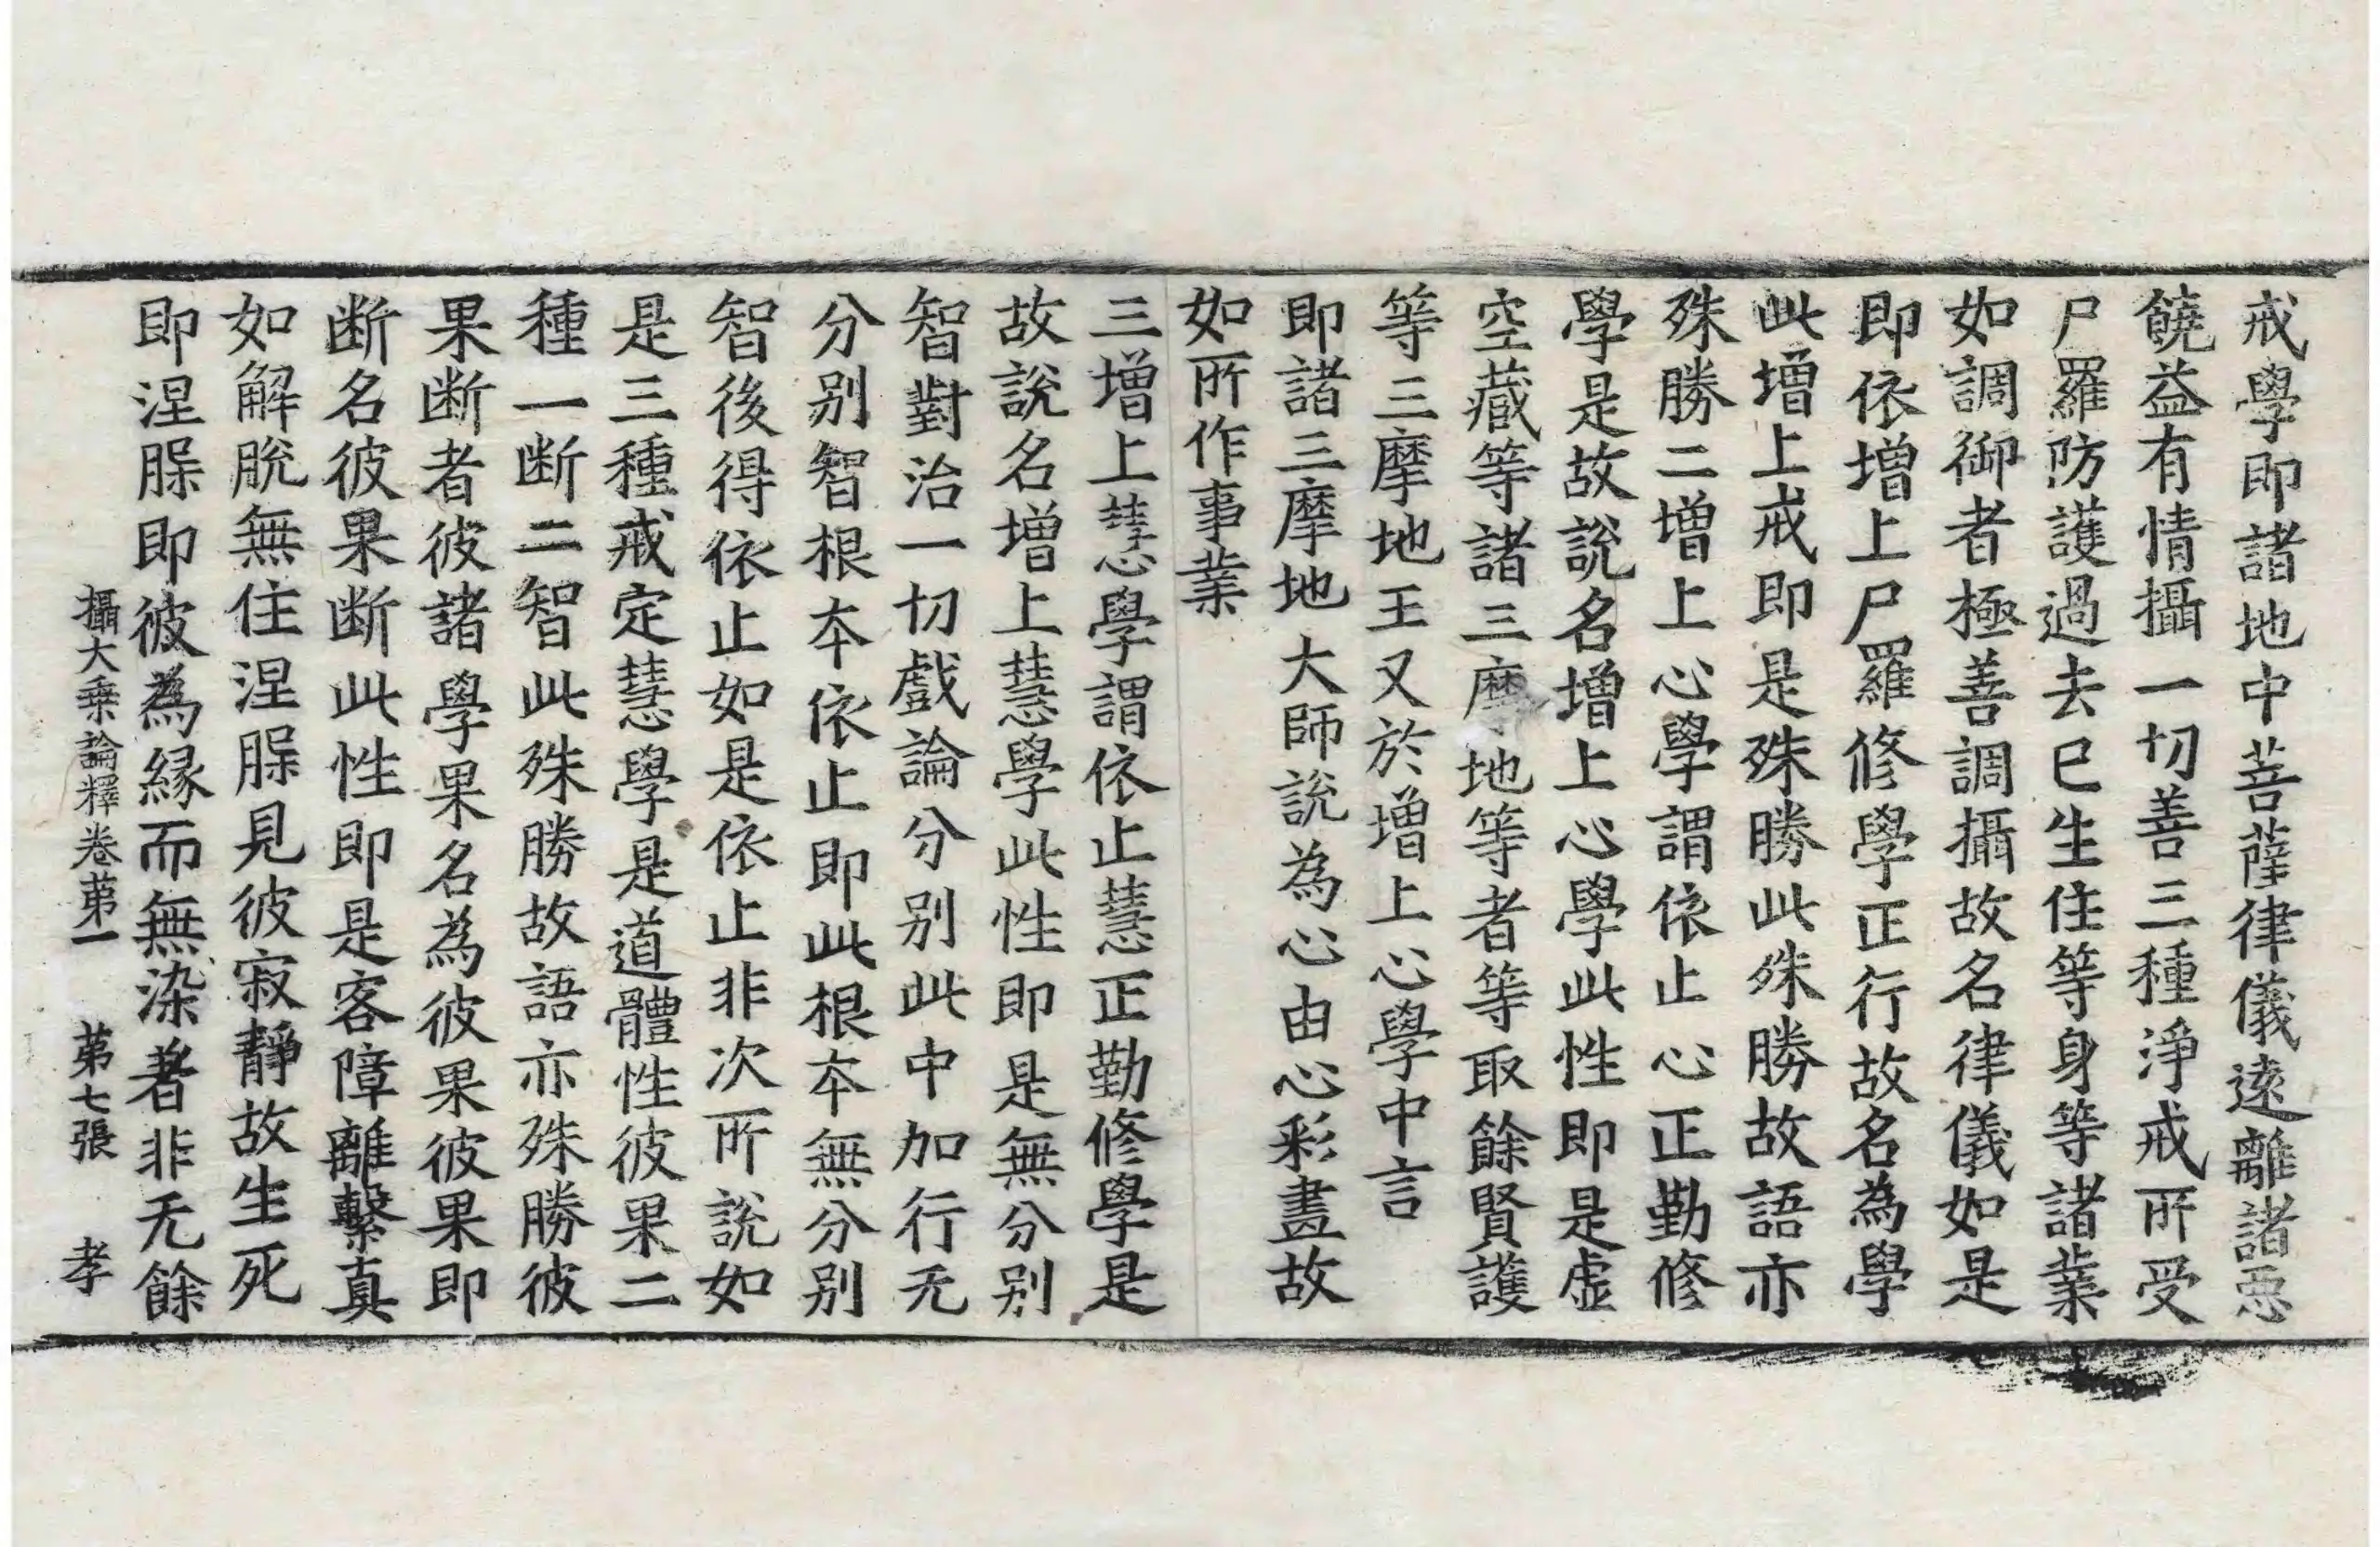 戒學即諸地中菩薩律儀遠離諸惡
饒益有情攝一切善三種淨戒所受
尸羅防護過去已生住等身等諸業
如調御者極善調攝故名律儀如是
即依增上尸羅修學正行故名為學
此增上戒即是殊勝此殊勝故語亦
殊勝二增上心學謂依止心正勤修
學是故說名增上心學此性即是虛
空藏等諸三摩地等者等取餘賢護
等三摩地王又於增上心學中言
即諸三摩地大師說為心由心彩畫故
如所作事業
三增上慧學謂依止慧正勤修學是
故說名增上慧學此性即是無分別
智對治一切戲論分別此中加行无
分別智根本依止即此根本無分別
智後得依止如是依止非次所說如
是三種戒定慧學是道體性彼果二
種一断二智此殊勝故語亦殊勝彼
果断者彼諸學果名為彼果彼果即
断名彼果断此性即是客障離繫真
如解脫無住涅脲見彼寂靜故生死
即涅脲即彼為緣而無染著非无餘
攝大乘論釋卷苐一 苐七張 孝